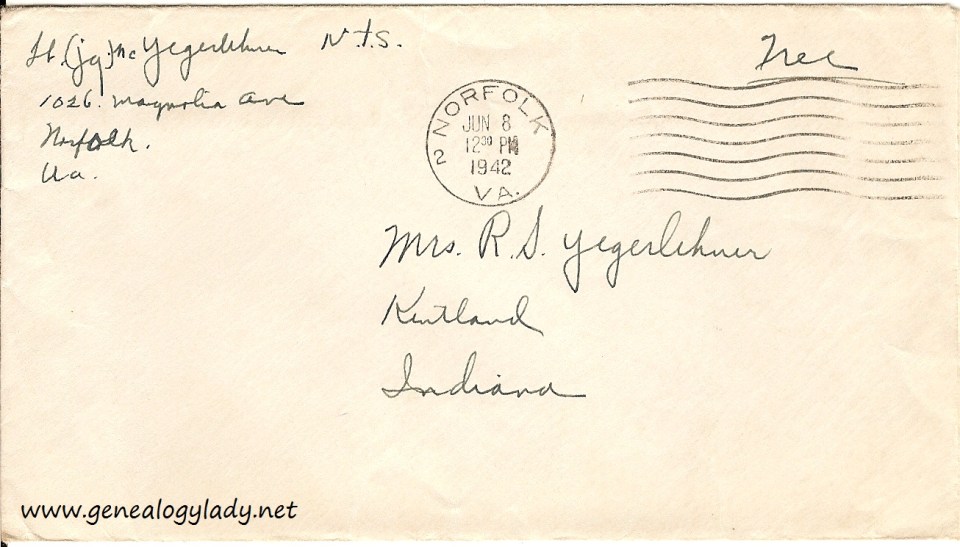 Lt. (jg) MC Yegerlehner N.T.S.
1026. Magnolia Ave
Norfolk.
Va.
Free
2 NORFOLK VA.
JUN 8
12 30 PM
1942
Mrs. R.S. Yegerlehner
Kentland
Indiana
www.genealogylady.net